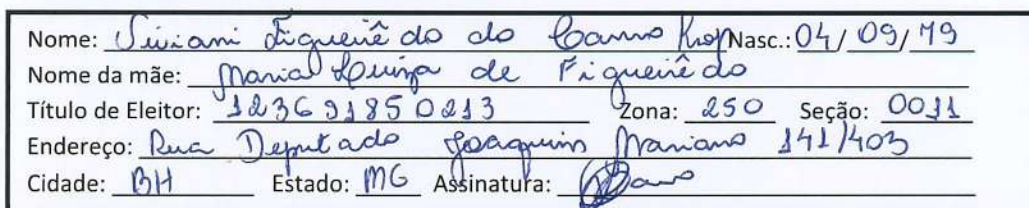 Nome: Viviani Figueiêdo do Carmo Krop Nasc.: 04/09/79
Nome da mãe: Maria Luiza de Figueiêdo
Título de Eleitor: 123691850213 Zona: 250 Seção: 0011
Endereço: Rua Deputado Joaquim Mariano 141/403
Cidade: BH Estado: MG Assinatura: